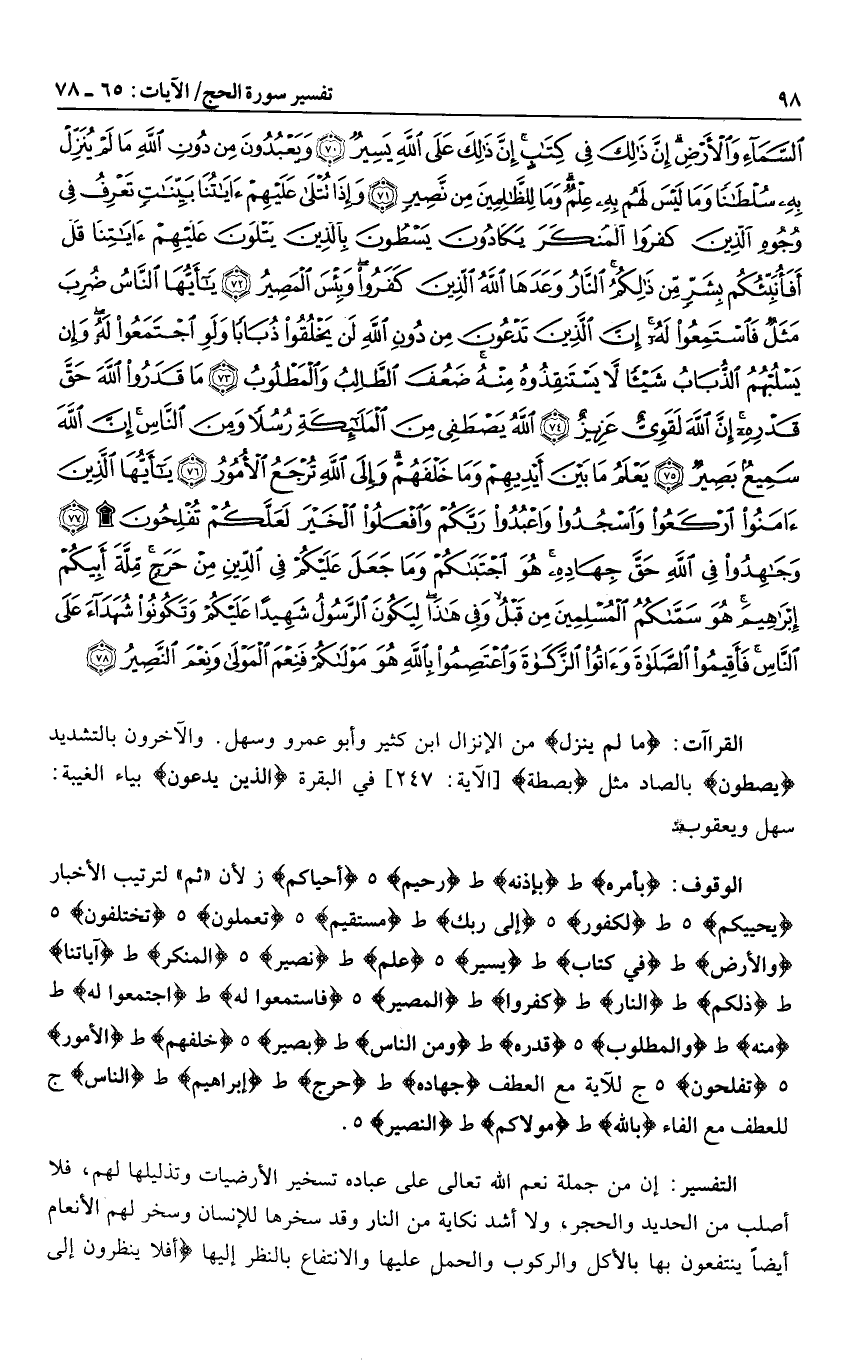 ٩٨ تفسير سورة الحج/ الآيات: ٦٥ ـ ٧٨
ٱلسَّمَآءِ وَٱلْأَرْضِ إِنَّ ذَٰلِكَ فِى كِتَٰبٍ إِنَّ ذَٰلِكَ عَلَى ٱللَّهِ يَسِيرٌ ﴿٧٠﴾ وَيَعْبُدُونَ مِن دُونِ ٱللَّهِ مَا لَمْ يُنَزِّلْ
بِهِۦ سُلْطَٰنًا وَمَا لَيْسَ لَهُم بِهِۦ عِلْمٌ وَمَا لِلظَّٰلِمِينَ مِن نَّصِيرٍ ﴿٧١﴾ وَإِذَا تُتْلَىٰ عَلَيْهِمْ ءَايَٰتُنَا بَيِّنَٰتٍ تَعْرِفُ فِى
وُجُوهِ ٱلَّذِينَ كَفَرُوا۟ ٱلْمُنكَرَ يَكَادُونَ يَسْطُونَ بِٱلَّذِينَ يَتْلُونَ عَلَيْهِمْ ءَايَٰتِنَا قُلْ
أَفَأُنَبِّئُكُم بِشَرٍّ مِّن ذَٰلِكُمُ ٱلنَّارُ وَعَدَهَا ٱللَّهُ ٱلَّذِينَ كَفَرُوا۟ وَبِئْسَ ٱلْمَصِيرُ ﴿٧٢﴾ يَٰٓأَيُّهَا ٱلنَّاسُ ضُرِبَ
مَثَلٌ فَٱسْتَمِعُوا۟ لَهُۥٓ إِنَّ ٱلَّذِينَ تَدْعُونَ مِن دُونِ ٱللَّهِ لَن يَخْلُقُوا۟ ذُبَابًا وَلَوِ ٱجْتَمَعُوا۟ لَهُۥ وَإِن
يَسْلُبْهُمُ ٱلذُّبَابُ شَيْـًٔا لَّا يَسْتَنقِذُوهُ مِنْهُ ضَعُفَ ٱلطَّالِبُ وَٱلْمَطْلُوبُ ﴿٧٣﴾ مَا قَدَرُوا۟ ٱللَّهَ حَقَّ
قَدْرِهِۦٓ إِنَّ ٱللَّهَ لَقَوِىٌّ عَزِيزٌ ﴿٧٤﴾ ٱللَّهُ يَصْطَفِى مِنَ ٱلْمَلَٰٓئِكَةِ رُسُلًا وَمِنَ ٱلنَّاسِ إِنَّ ٱللَّهَ
سَمِيعٌۢ بَصِيرٌ ﴿٧٥﴾ يَعْلَمُ مَا بَيْنَ أَيْدِيهِمْ وَمَا خَلْفَهُمْ وَإِلَى ٱللَّهِ تُرْجَعُ ٱلْأُمُورُ ﴿٧٦﴾ يَٰٓأَيُّهَا ٱلَّذِينَ
ءَامَنُوا۟ ٱرْكَعُوا۟ وَٱسْجُدُوا۟ وَٱعْبُدُوا۟ رَبَّكُمْ وَٱفْعَلُوا۟ ٱلْخَيْرَ لَعَلَّكُمْ تُفْلِحُونَ ۩ ﴿٧٧﴾
وَجَٰهِدُوا۟ فِى ٱللَّهِ حَقَّ جِهَادِهِۦ هُوَ ٱجْتَبَىٰكُمْ وَمَا جَعَلَ عَلَيْكُمْ فِى ٱلدِّينِ مِنْ حَرَجٍ مِّلَّةَ أَبِيكُمْ
إِبْرَٰهِيمَ هُوَ سَمَّىٰكُمُ ٱلْمُسْلِمِينَ مِن قَبْلُ وَفِى هَٰذَا لِيَكُونَ ٱلرَّسُولُ شَهِيدًا عَلَيْكُمْ وَتَكُونُوا۟ شُهَدَآءَ عَلَى
ٱلنَّاسِ فَأَقِيمُوا۟ ٱلصَّلَوٰةَ وَءَاتُوا۟ ٱلزَّكَوٰةَ وَٱعْتَصِمُوا۟ بِٱللَّهِ هُوَ مَوْلَىٰكُمْ فَنِعْمَ ٱلْمَوْلَىٰ وَنِعْمَ ٱلنَّصِيرُ ﴿٧٨﴾
القراآت: ﴿ما لم ينزل﴾ من الإنزال ابن كثير وأبو عمرو وسهل. والآخرون بالتشديد
﴿يصطون﴾ بالصاد مثل ﴿بصطة﴾ [الآية: ٢٤٧] في البقرة ﴿الذين يدعون﴾ بياء الغيبة:
سهل ويعقوب.
الوقوف: ﴿بأمره﴾ ط ﴿بإذنه﴾ ط ﴿رحيم﴾ ٥ ﴿أحياكم﴾ ز لأن «ثم» لترتيب الأخبار
﴿يحييكم﴾ ط ٥ ﴿لكفور﴾ ٥ ﴿إلى ربك﴾ ط ﴿مستقيم﴾ ٥ ﴿تعملون﴾ ٥ ﴿تختلفون﴾ ٥
﴿والأرض﴾ ط ﴿في كتاب﴾ ط ﴿يسير﴾ ٥ ﴿علم﴾ ط ﴿نصير﴾ ٥ ﴿المنكر﴾ ط ﴿آياتنا﴾
ط ﴿ذلكم﴾ ط ﴿النار﴾ ط ﴿كفروا﴾ ط ﴿المصير﴾ ٥ ﴿فاستمعوا له﴾ ط ﴿اجتمعوا له﴾ ط
﴿منه﴾ ط ﴿والمطلوب﴾ ٥ ﴿قدره﴾ ط ﴿ومن الناس﴾ ط ﴿بصير﴾ ٥ ﴿خلفهم﴾ ط ﴿الأمور﴾
٥ ﴿تفلحون﴾ ٥ ج للآية مع العطف ﴿جهاده﴾ ط ﴿حرج﴾ ط ﴿إبراهيم﴾ ط ﴿الناس﴾ ج
للعطف مع الفاء ﴿بالله﴾ ط ﴿مولاكم﴾ ط ﴿النصير﴾ ٥.
التفسير: إن من جملة نعم الله تعالى على عباده تسخير الأرضيات وتذليلها لهم، فلا
أصلب من الحديد والحجر، ولا أشد نكاية من النار وقد سخرها للإنسان وسخر لهم الأنعام
أيضاً ينتفعون بها بالأكل والركوب والحمل عليها والانتفاع بالنظر إليها ﴿أفلا ينظرون إلى